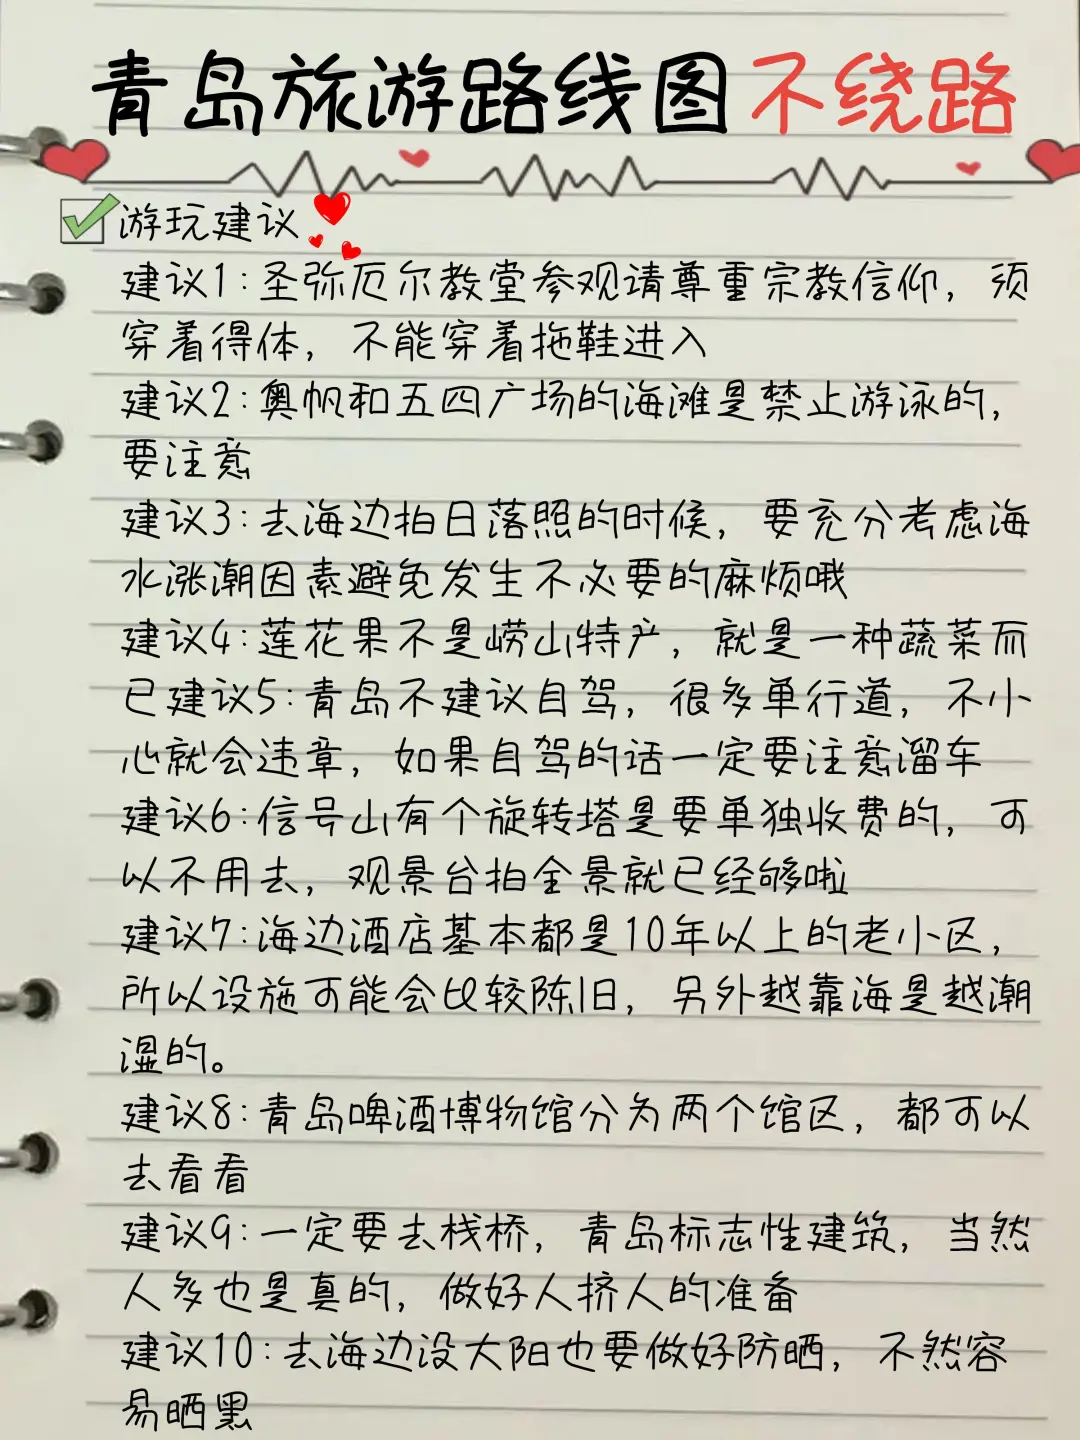 青岛旅游路线图不绕路
游玩建议
建议1:圣弥厄尔教堂参观请尊重宗教信仰，须
穿着得体，不能穿着拖鞋进入
建议2:奥帆和五四广场的海滩是禁止游泳的，
要注意
建议3:去海边拍日落照的时候，要充分考虑海
水涨潮因素避免发生不必要的麻烦哦
建议4:莲花果不是崂山特产，就是一种蔬菜而
已建议5:青岛不建议自驾，很多单行道，不小
心就会违章，如果自驾的话一定要注意溜车
建议6:信号山有个旋转塔是要单独收费的，可
以不用去，观景台拍全景就已经够啦
建议7:海边酒店基本都是10年以上的老小区，
所以设施可能会比较陈旧，另外越靠海是越潮
湿的。
建议8:青岛啤酒博物馆分为两个馆区，都可以
去看看
建议9:一定要去栈桥，青岛标志性建筑，当然
人多也是真的，做好人挤人的准备
建议10:去海边设大阳也要做好防晒，不然容
易晒黑